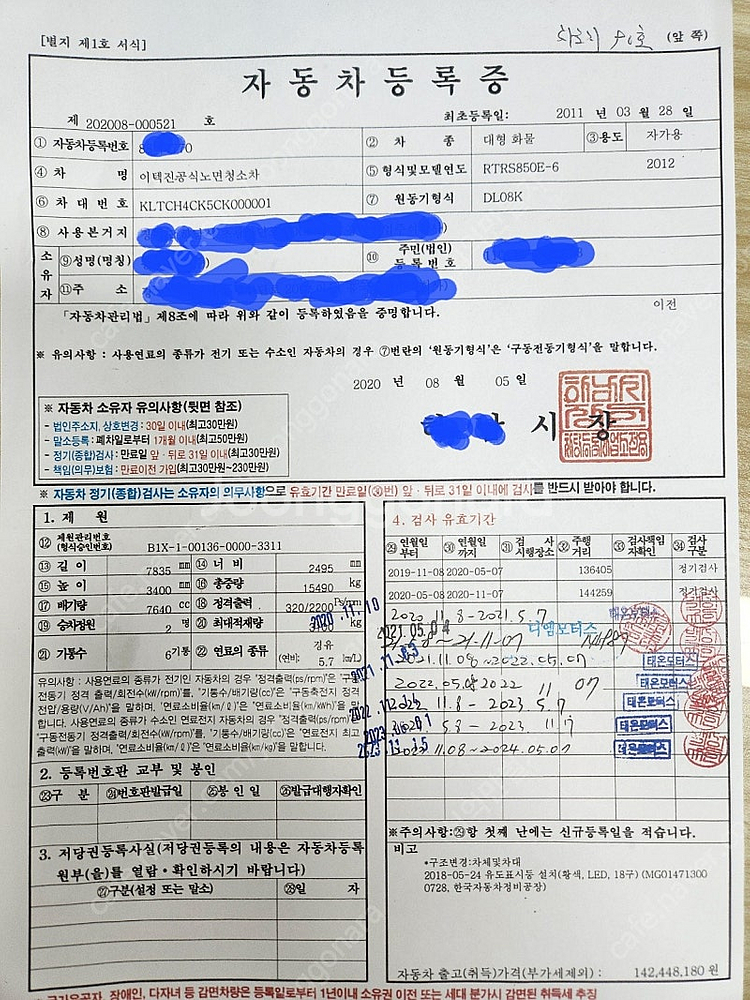 [별지 제1호 서식]
(앞 쪽)
자동차등록증
제 202008-000521 호
최초등록일: 2011 년 03 월 28 일
① 자동차등록번호 ② 차 종 대형 화물 ③용도 자가용
④ 차 명 이텍진공식노면청소차 ⑤ 형식및모델연도 RTRS850E-6 2012
⑥ 차 대 번 호 KLTCH4CK5CK000001 ⑦ 원동기형식 DL08K
⑧ 사용본거지
소유자 ⑨성명(명칭) ⑩ 주민(법인)등록번호
⑪주 소
이전
「자동차관리법」제8조에 따라 위와 같이 등록하였음을 증명합니다.
※ 유의사항 : 사용연료의 종류가 전기 또는 수소인 자동차의 경우 ⑦번란의 '원동기형식'은 '구동전동기형식'을 말합니다.
2020 년 08 월 05 일
시 장
※ 자동차 소유자 유의사항(뒷면 참조)
- 법인주소지, 상호변경 : 30일 이내(최고30만원)
- 말소등록 : 폐차일로부터 1개월 이내(최고50만원)
- 정기(종합)검사 : 만료일 앞ㆍ뒤로 31일 이내(최고30만원)
- 책임(의무)보험 : 만료이전 가입(최고30만원~230만원)
※ 자동차 정기(종합)검사는 소유자의 의무사항으로 유효기간 만료일(㉚번) 앞ㆍ뒤로 31일 이내에 검사를 반드시 받아야 합니다.
1. 제 원
⑫ 제원관리번호(형식승인번호) B1X-1-00136-0000-3311
⑬ 길 이 7835 mm ⑭ 너 비 2495 mm
⑮ 높 이 3400 mm ⑯ 총중량 15490 kg
⑰ 배기량 7640 cc ⑱ 정격출력 320/2200 Ps/rpm
⑲ 승차정원 2 명 ⑳ 최대적재량 kg
㉑ 기통수 6기통 ㉒ 연료의 종류 경유 (연비: 5.7 ㎞/L)
유의사항 : 사용연료의 종류가 전기인 자동차의 경우 '정격출력(ps/rpm)'은 '구동
전동기 정격 출력/회전수(kW/rpm)'를, '기통수/배기량(cc)'은 '구동축전지 정격
전압/용량(V/Ah)'을 말하며, '연료소비율(km/ℓ)'은 '연료소비율(km/kWh)'을 말
합니다. 사용연료의 종류가 수소인 자동차의 경우 '정격출력(ps/rpm)'은
'구동전동기 정격 출력/회전수(kW/rpm)'를, '기통수/배기량(cc)'은 '연료전지 최고
출력(kW)'을 말하며, '연료소비율(km/ℓ)'은 '연료소비율(km/kg)'을 말합니다.
2. 등록번호판 교부 및 봉인
㉓구 분 ㉔번호판발급일 ㉕봉 인 일 ㉖발급대행자확인
3. 저당권등록사실(저당권등록의 내용은 자동차등록
원부(을)를 열람ㆍ확인하시기 바랍니다)
㉗구분(설정 또는 말소) ㉘일 자
4. 검사 유효기간
㉙ 연월일부터 ㉚ 연월일까지 ㉛ 검 사시행장소 ㉜ 주행거리 ㉝ 검사책임자확인 ㉞ 검사구분
2019-11-08 2020-05-07 136405 정기검사
2020-05-08 2020-11-07 144259 정기검사
2020.11.10
2020 11.8-2021.5.7 태온모터스
2021.05.04
~21-11-07 디엠모터스
2021.11.08~2022.05.07 태온모터스
2022.05.08 2022 11 07 태온모터스
11.8 - 2023 5.7 태온모터스
5.8 - 2023. 11 7 태온모터스
11.08~2024.05.07 태온모터스
※주의사항:㉙항 첫째 난에는 신규등록일을 적습니다.
비고
•구조변경:차체및차대
2018-05-24 유도표시등 설치(황색, LED, 18구) (MG01471300
0728, 한국자동차정비공장)
자동차 출고(취득)가격(부가세제외) : 142,448,180 원
※ 국가유공자, 장애인, 다자녀 등 감면차량은 등록일로부터 1년이내 소유권 이전 또는 세대 분가시 감면된 취득세 추징